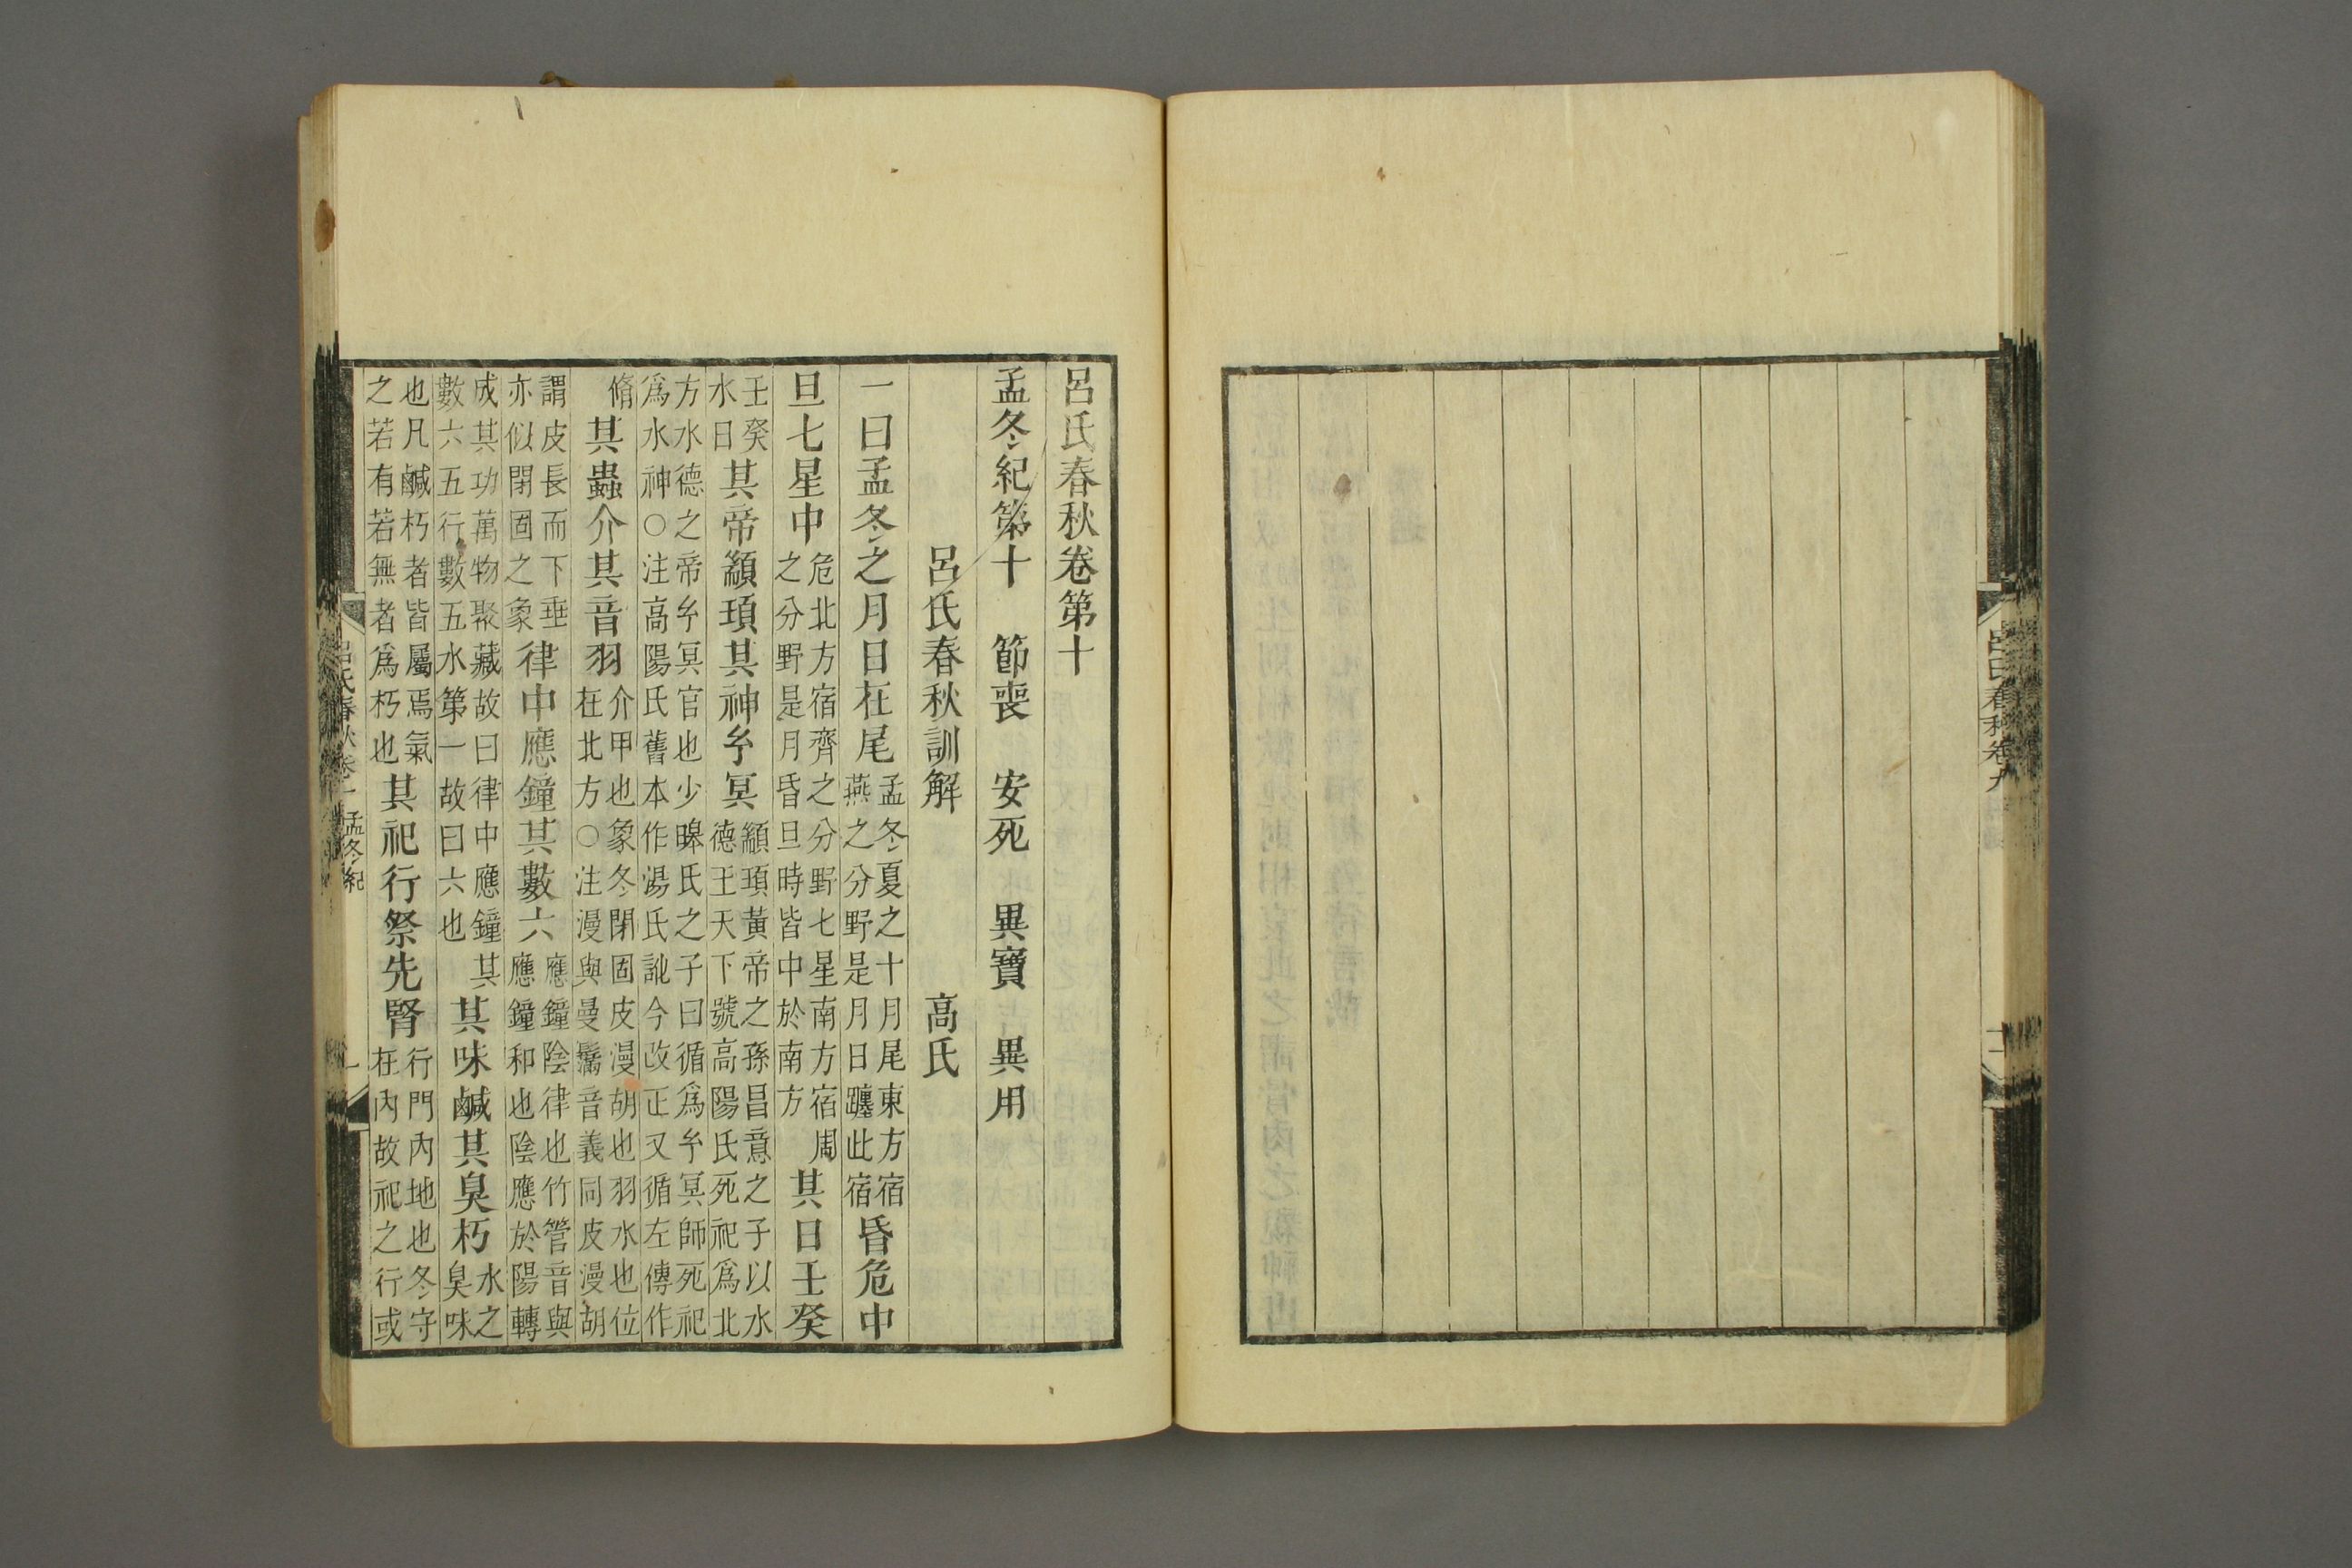 呂氏春秋卷九
呂氏春秋卷第十
孟冬紀第十　節喪　安死　異寶　異用
呂氏春秋訓解　高氏
一曰孟冬之月日在尾孟冬夏之十月尾東方宿燕之分野是月日躔此宿昏危中
旦七星中危北方宿齊之分野七星南方宿周之分野是月昏旦時皆中於南方其日壬癸
壬癸水日其帝顓頊其神𤣥冥顓頊黃帝之孫昌意之子以水德王天下號高陽氏死祀爲北
方水德之帝𤣥冥官也少皞氏之子曰循爲𤣥冥師死祀爲水神○注高陽氏舊本作湯氏訛今改正又循左傳作
脩其蟲介其音羽介甲也象冬閉固皮漫胡也羽水也位在北方○注漫與曼鬗音義同皮漫胡
謂皮長而下垂亦似閉固之象律中應鐘其數六應鐘陰律也竹管音與應鐘和也陰應於陽轉
成其功萬物聚藏故曰律中應鐘其數六五行數五水第一故曰六也其味鹹其臭朽水之臭味
也凡鹹朽者皆屬焉氣之若有若無者爲朽也其祀行祭先腎行門內地也冬守在內故祀之行或
呂氏春秋卷十　孟冬紀　一